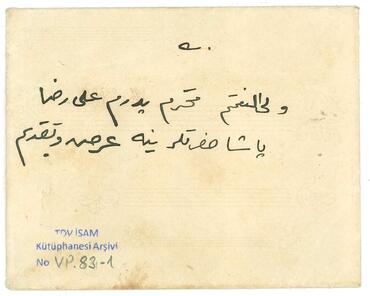 ولی النعمتم محترم پدرم علی رضا
پاشا حضرتلرینه عرض و تقدیم
TDV İSAM
Kütüphanesi Arşivi
No VP.83-1